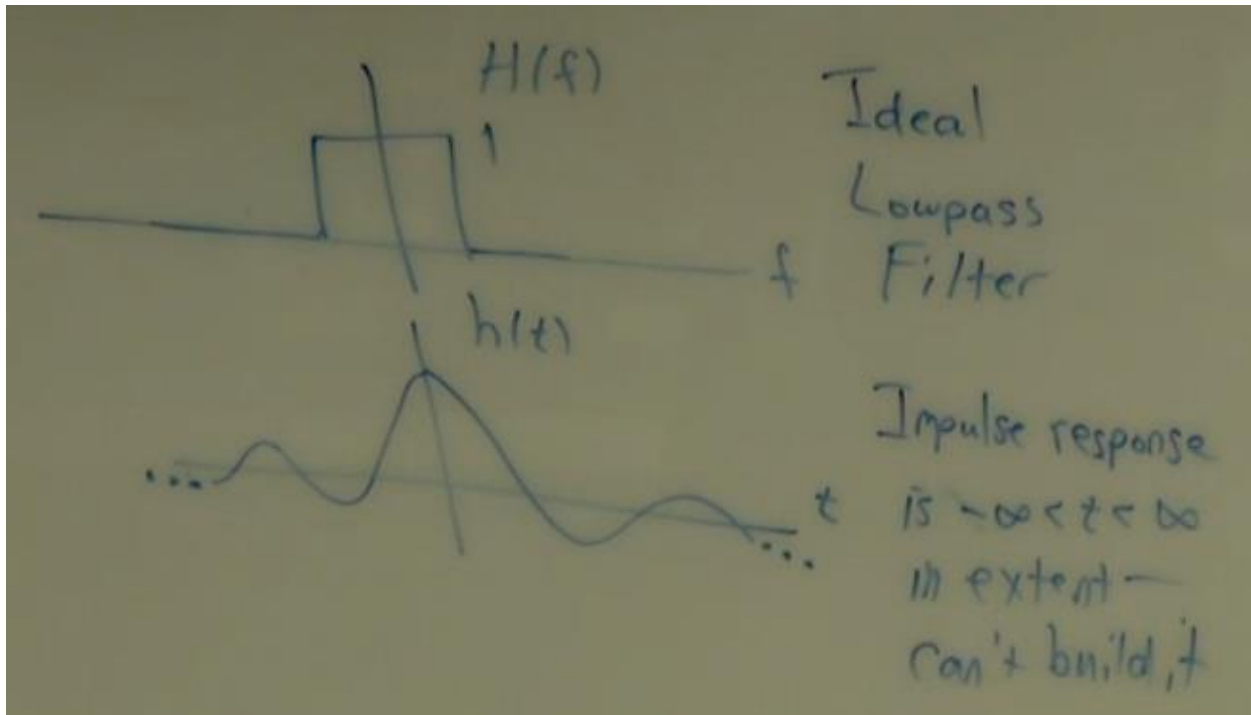 H(f)
1
Ideal
Lowpass
Filter
f
h(t)
t
Impulse response
is -∞ < t < ∞
in extent —
can't build it